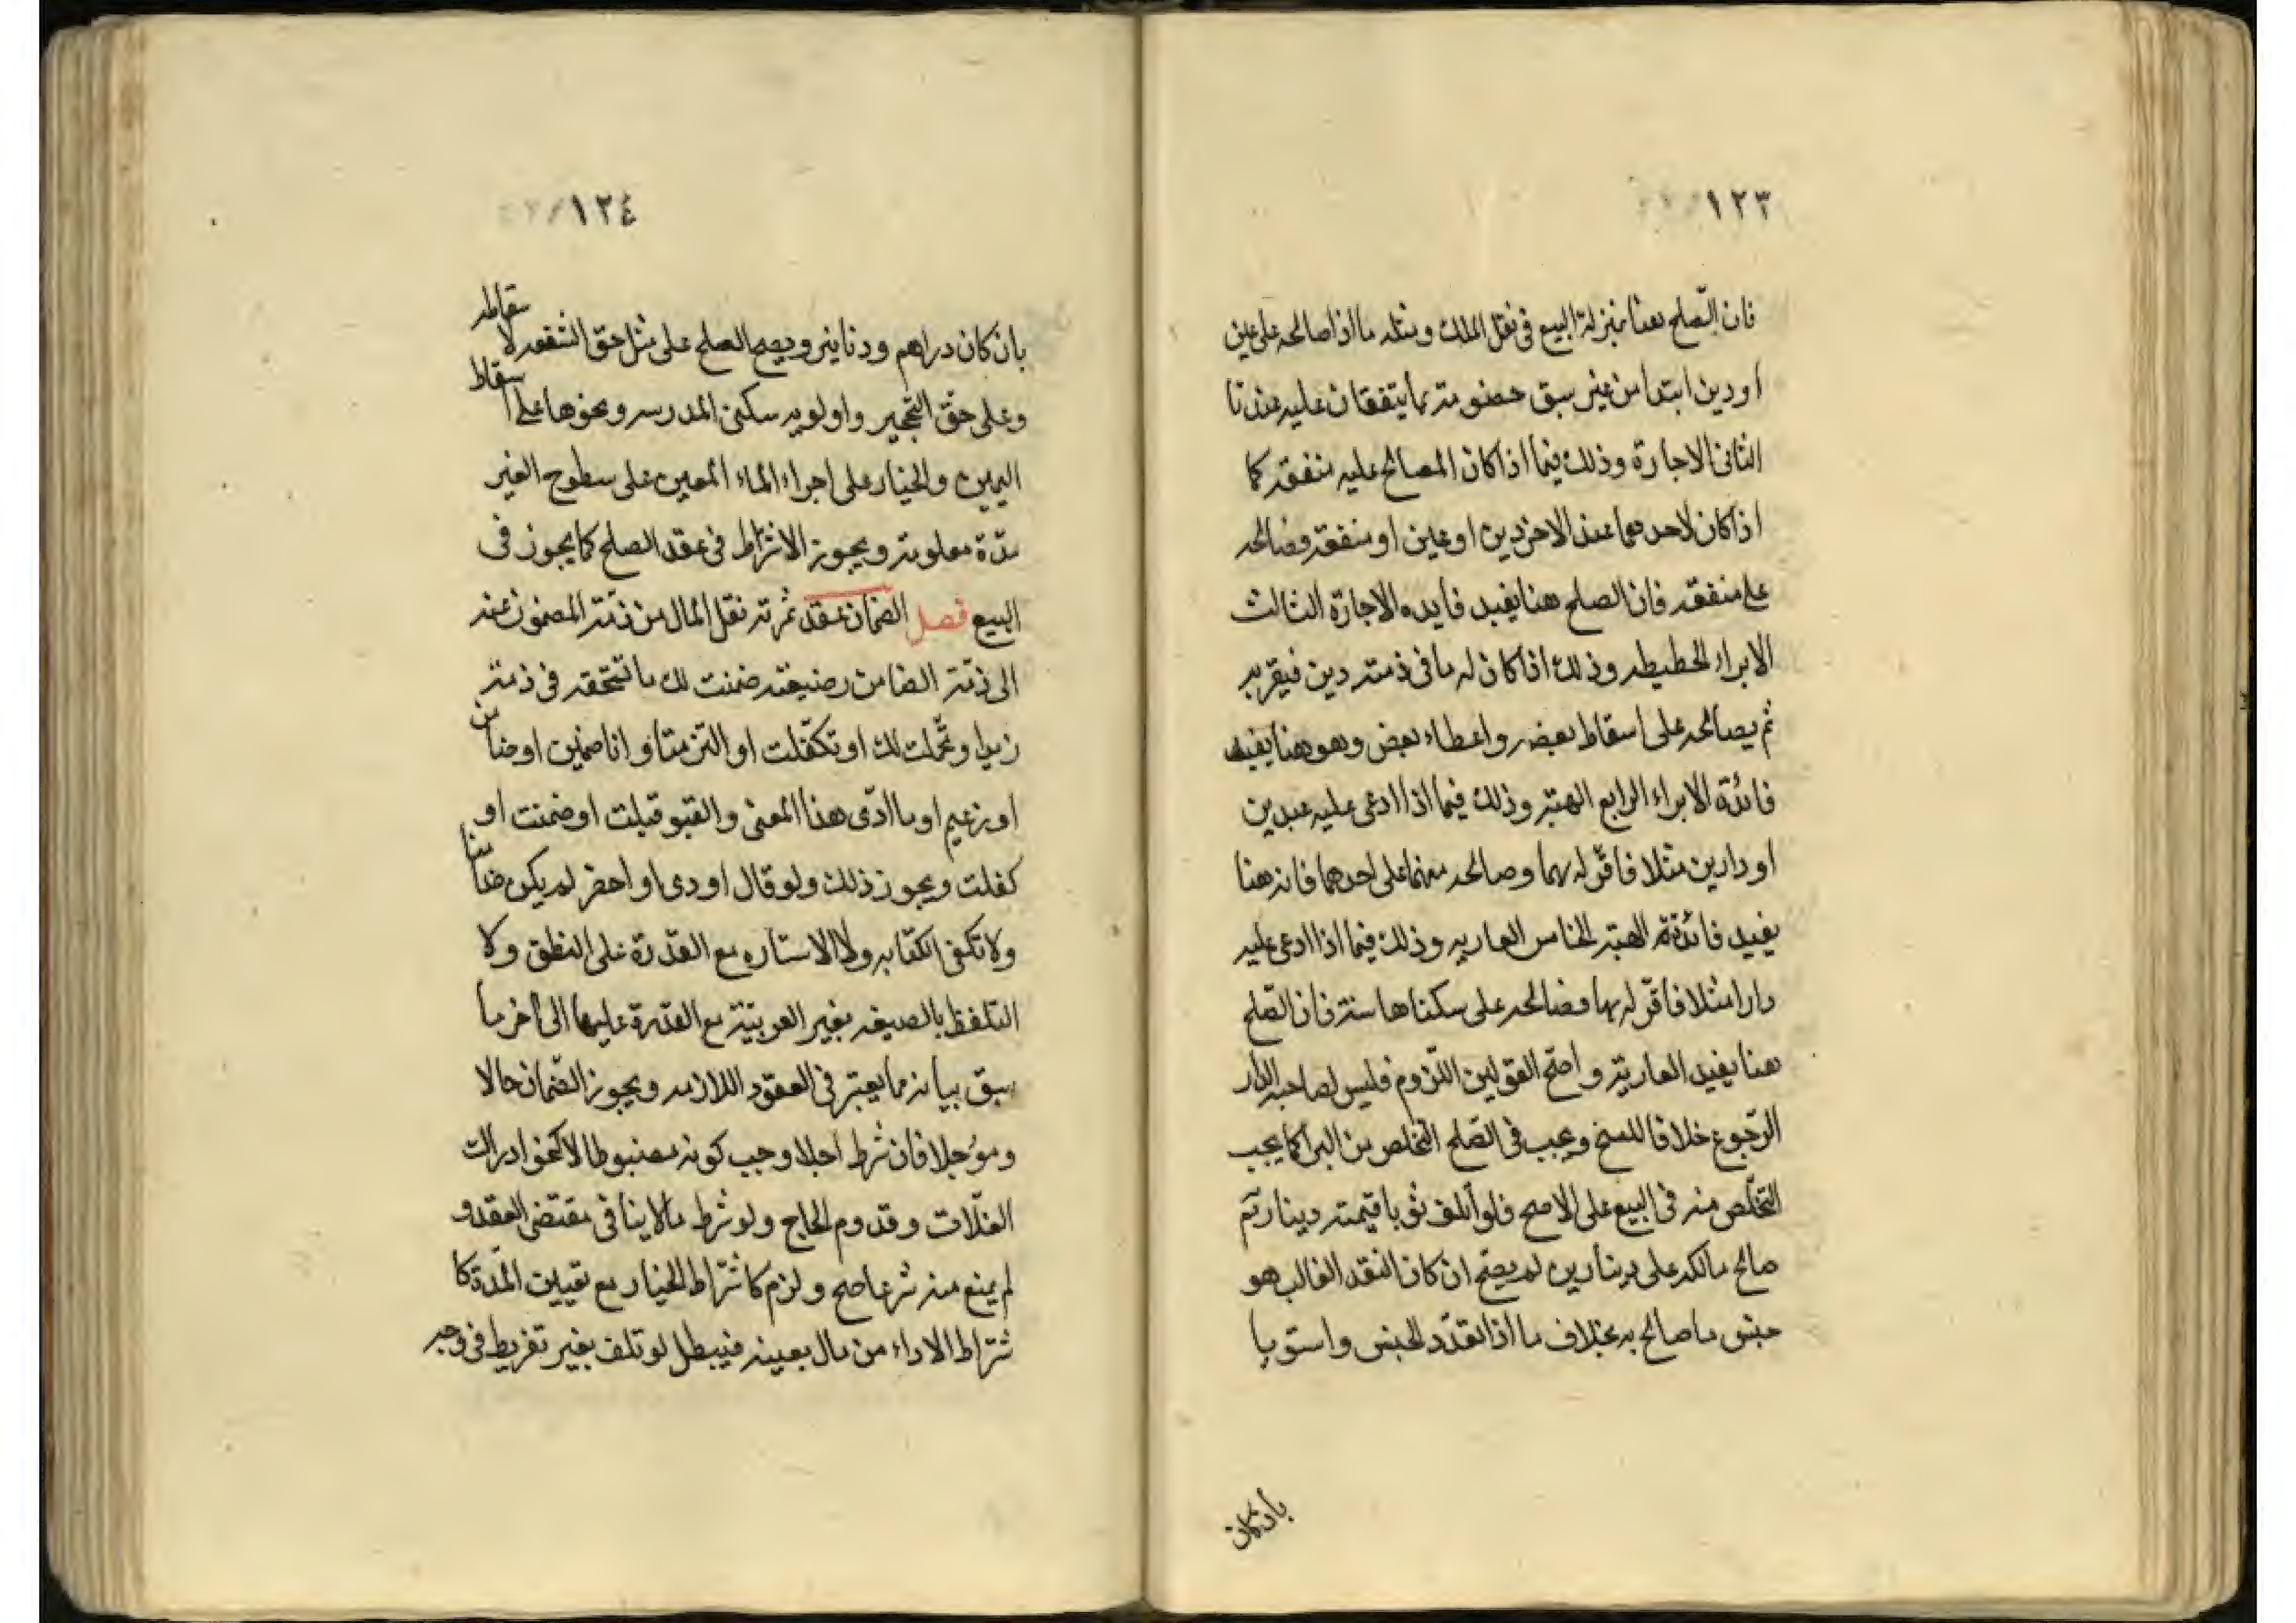 ١٢٣
فان الصلح هنا بمنزلة البيع فى نقل الملك ومثله ما اذا صالحه على عين
او دين ابتدا من غير سبق خصومته بما يتفقان عليه عندنا
الثانى الاجارة وذلك فيما اذا كان المصالح عليه منفقه كما
اذا كان لاحدهما عند الاخر دين او عين او منفقه فصالحه
على منفقه فان الصلح هنا يفيد فايده الاجارة الثالث
الابراء الحطيطه وذلك اذا كان له ما فى ذمته دين فيقر به
ثم يصالحه على اسقاط بعضه واعطاء بعض وهو هنا يفيد
فائدة الابراء الرابع الهبة وذلك فيما اذا ادعى عليه عبدين
او دارين مثلا فاقر له بهما وصالحه منهما على احدهما فانه هنا
يفيد فائدة الهبة الخامس العاريه وذلك فيما اذا ادعى عليه
دارا مثلا فاقر له بها فصالحه على سكناها سنة فان الصلح
هنا يفيد العارية واصح القولين اللزوم فليس لصاحب الدار
الرجوع خلافا للسخ ويجب فى الصلح التخلص من الربا كما يجب
التخلص منه فى البيع على الاصح فلو اتلف ثوبا قيمته دينار ثم
صالح مالكه على دينارين لم يصح ان كان النقد الغالب هو
جنس ما صالح به بخلاف ما اذا تعدد الجنس واستويا
بان كان
١٢٤
بان كان دراهم ودنانير ويصح الصلح على مثل حق الشفعه لاسقاطه
وعلى حق التحجير واولويه سكنى المدرسه ونحوها على اسقاط
اليمين والخيار على اجراء الماء المعين على سطوح الغير
مدة معلومة ويجوز الاشتراط فى عقد الصلح كما يجوز فى
البيع فصل الضمان عقد ثمرته نقل المال من ذمة المضمون عنه
الى ذمة الضامن وصيغته ضمنت لك ما تستحقه فى ذمة
زيد او تحملت لك او تكفلت او التزمت او انا ضمين او ضامن
او زعيم او ما ادى هذا المعنى والقبو قبلت او ضمنت او
كفلت ويجوز ذلك ولو قال اودى او احضر لم يكن ضامنا
ولا تكفى الكتابه ولا الاستاره مع القدرة على النطق ولا
التلفظ بالصيغه بغير العربيّة مع القدرة عليها الى آخر ما
سبق بيانه مما يعتبر فى العقود اللازمه ويجوز الضمان حالا
ومؤجلا فان شرط اجلا وجب كونه مضبوطا لا كنحو ادراك
الغلّات وقدوم الحاج ولو شرط ما لا ينافى مقتضى العقد و
لم يمنع منه شرعا صح ولزم كاشتراط الخيار مع تعيين المدة كا
شتراط الاداء من مال بعينه فيبطل لو تلف بغير تفريط فى وجه